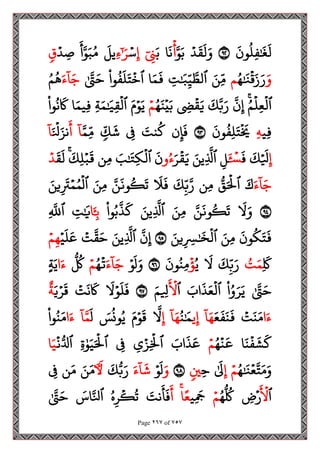 لَغَٰفِلُونَ ٩٢ وَلَقَدۡ بَوَّأۡنَا بَنِيٓ إِسۡرَٰٓءِيلَ مُبَوَّأَ صِدۡقٖ
وَرَزَقۡنَٰهُم مِّنَ ٱلطَّيِّبَٰتِ فَمَا ٱخۡتَلَفُواْ حَتَّىٰ جَآءَهُمُ
ٱلۡعِلۡمُۚ إِنَّ رَبَّكَ يَقۡضِي بَيۡنَهُمۡ يَوۡمَ ٱلۡقِيَٰمَةِ فِيمَا كَانُواْ
فِيهِ يَخۡتَلِفُونَ ٩٣ فَإِن كُنتَ فِي شَكّٖ مِّمَّآ أَنزَلۡنَآ
إِلَيۡكَ فَسۡـَٔلِ ٱلَّذِينَ يَقۡرَءُونَ ٱلۡكِتَٰبَ مِن قَبۡلِكَۚ لَقَدۡ
جَآءَكَ ٱلۡحَقُّ مِن رَّبِّكَ فَلَا تَكُونَنَّ مِنَ ٱلۡمُمۡتَرِينَ
٩٤ وَلَا تَكُونَنَّ مِنَ ٱلَّذِينَ كَذَّبُواْ بِـَٔايَٰتِ ٱللَّهِ
فَتَكُونَ مِنَ ٱلۡخَٰسِرِينَ ٩٥ إِنَّ ٱلَّذِينَ حَقَّتۡ عَلَيۡهِمۡ
كَلِمَتُ رَبِّكَ لَا يُؤۡمِنُونَ ٩٦ وَلَوۡ جَآءَتۡهُمۡ كُلُّ ءَايَةٍ
حَتَّىٰ يَرَوُاْ ٱلۡعَذَابَ ٱلۡأَلِيمَ ٩٧ فَلَوۡلَا كَانَتۡ قَرۡيَةٌ
ءَامَنَتۡ فَنَفَعَهَآ إِيمَٰنُهَآ إِلَّا قَوۡمَ يُونُسَ لَمَّآ ءَامَنُواْ
كَشَفۡنَا عَنۡهُمۡ عَذَابَ ٱلۡخِزۡيِ فِي ٱلۡحَيَوٰةِ ٱلدُّنۡيَا
وَمَتَّعۡنَٰهُمۡ إِلَىٰ حِينٖ ٩٨ وَلَوۡ شَآءَ رَبُّكَ لَأٓمَنَ مَن فِي
ٱلۡأَرۡضِ كُلُّهُمۡ جَمِيعًاۚ أَفَأَنتَ تُكۡرِهُ ٱلنَّاسَ حَتَّىٰ